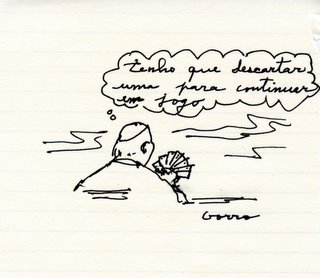 tenho que descartar
uma para continuar
em jogo